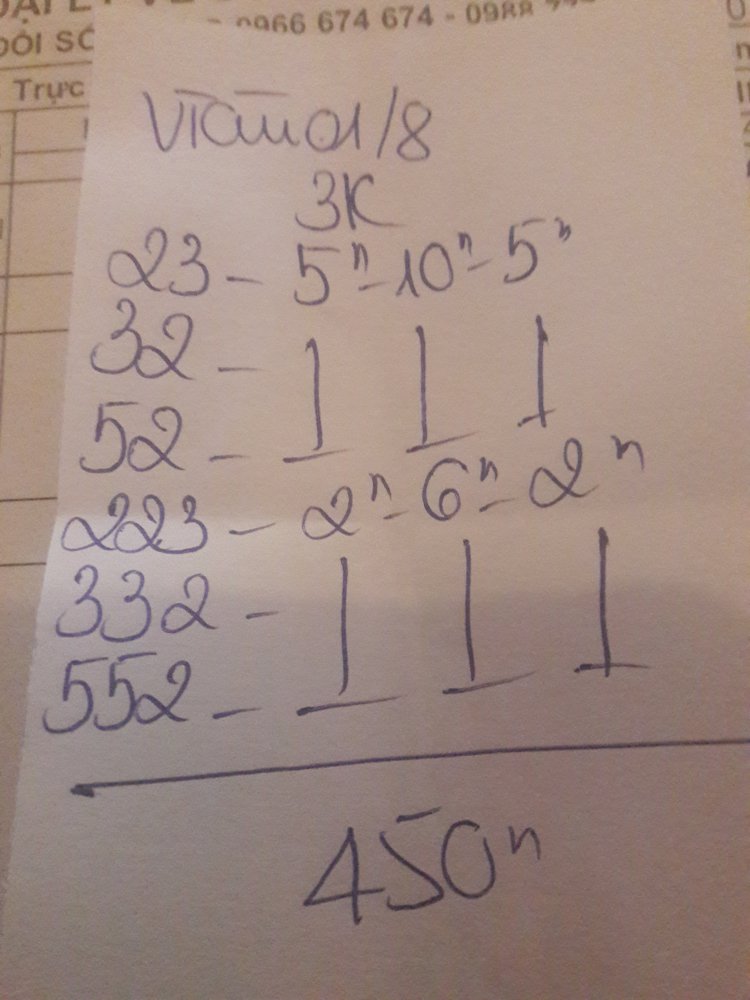 0966 674 674 - 0988
ĐỔI SỐ
Trực
01/8
3K
23 - 5ⁿ - 10ⁿ - 5ⁿ
32 -
52 -
223 - 2ⁿ - 6ⁿ - 2ⁿ
332 -
552 -
450ⁿ